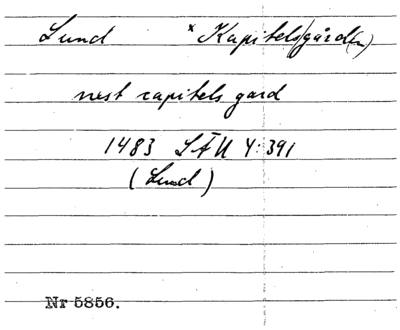 Lund * Kapitels/gård(en)
nest capitels gard
1483 LÄU 4:391
(Lund)
Nr 5856.